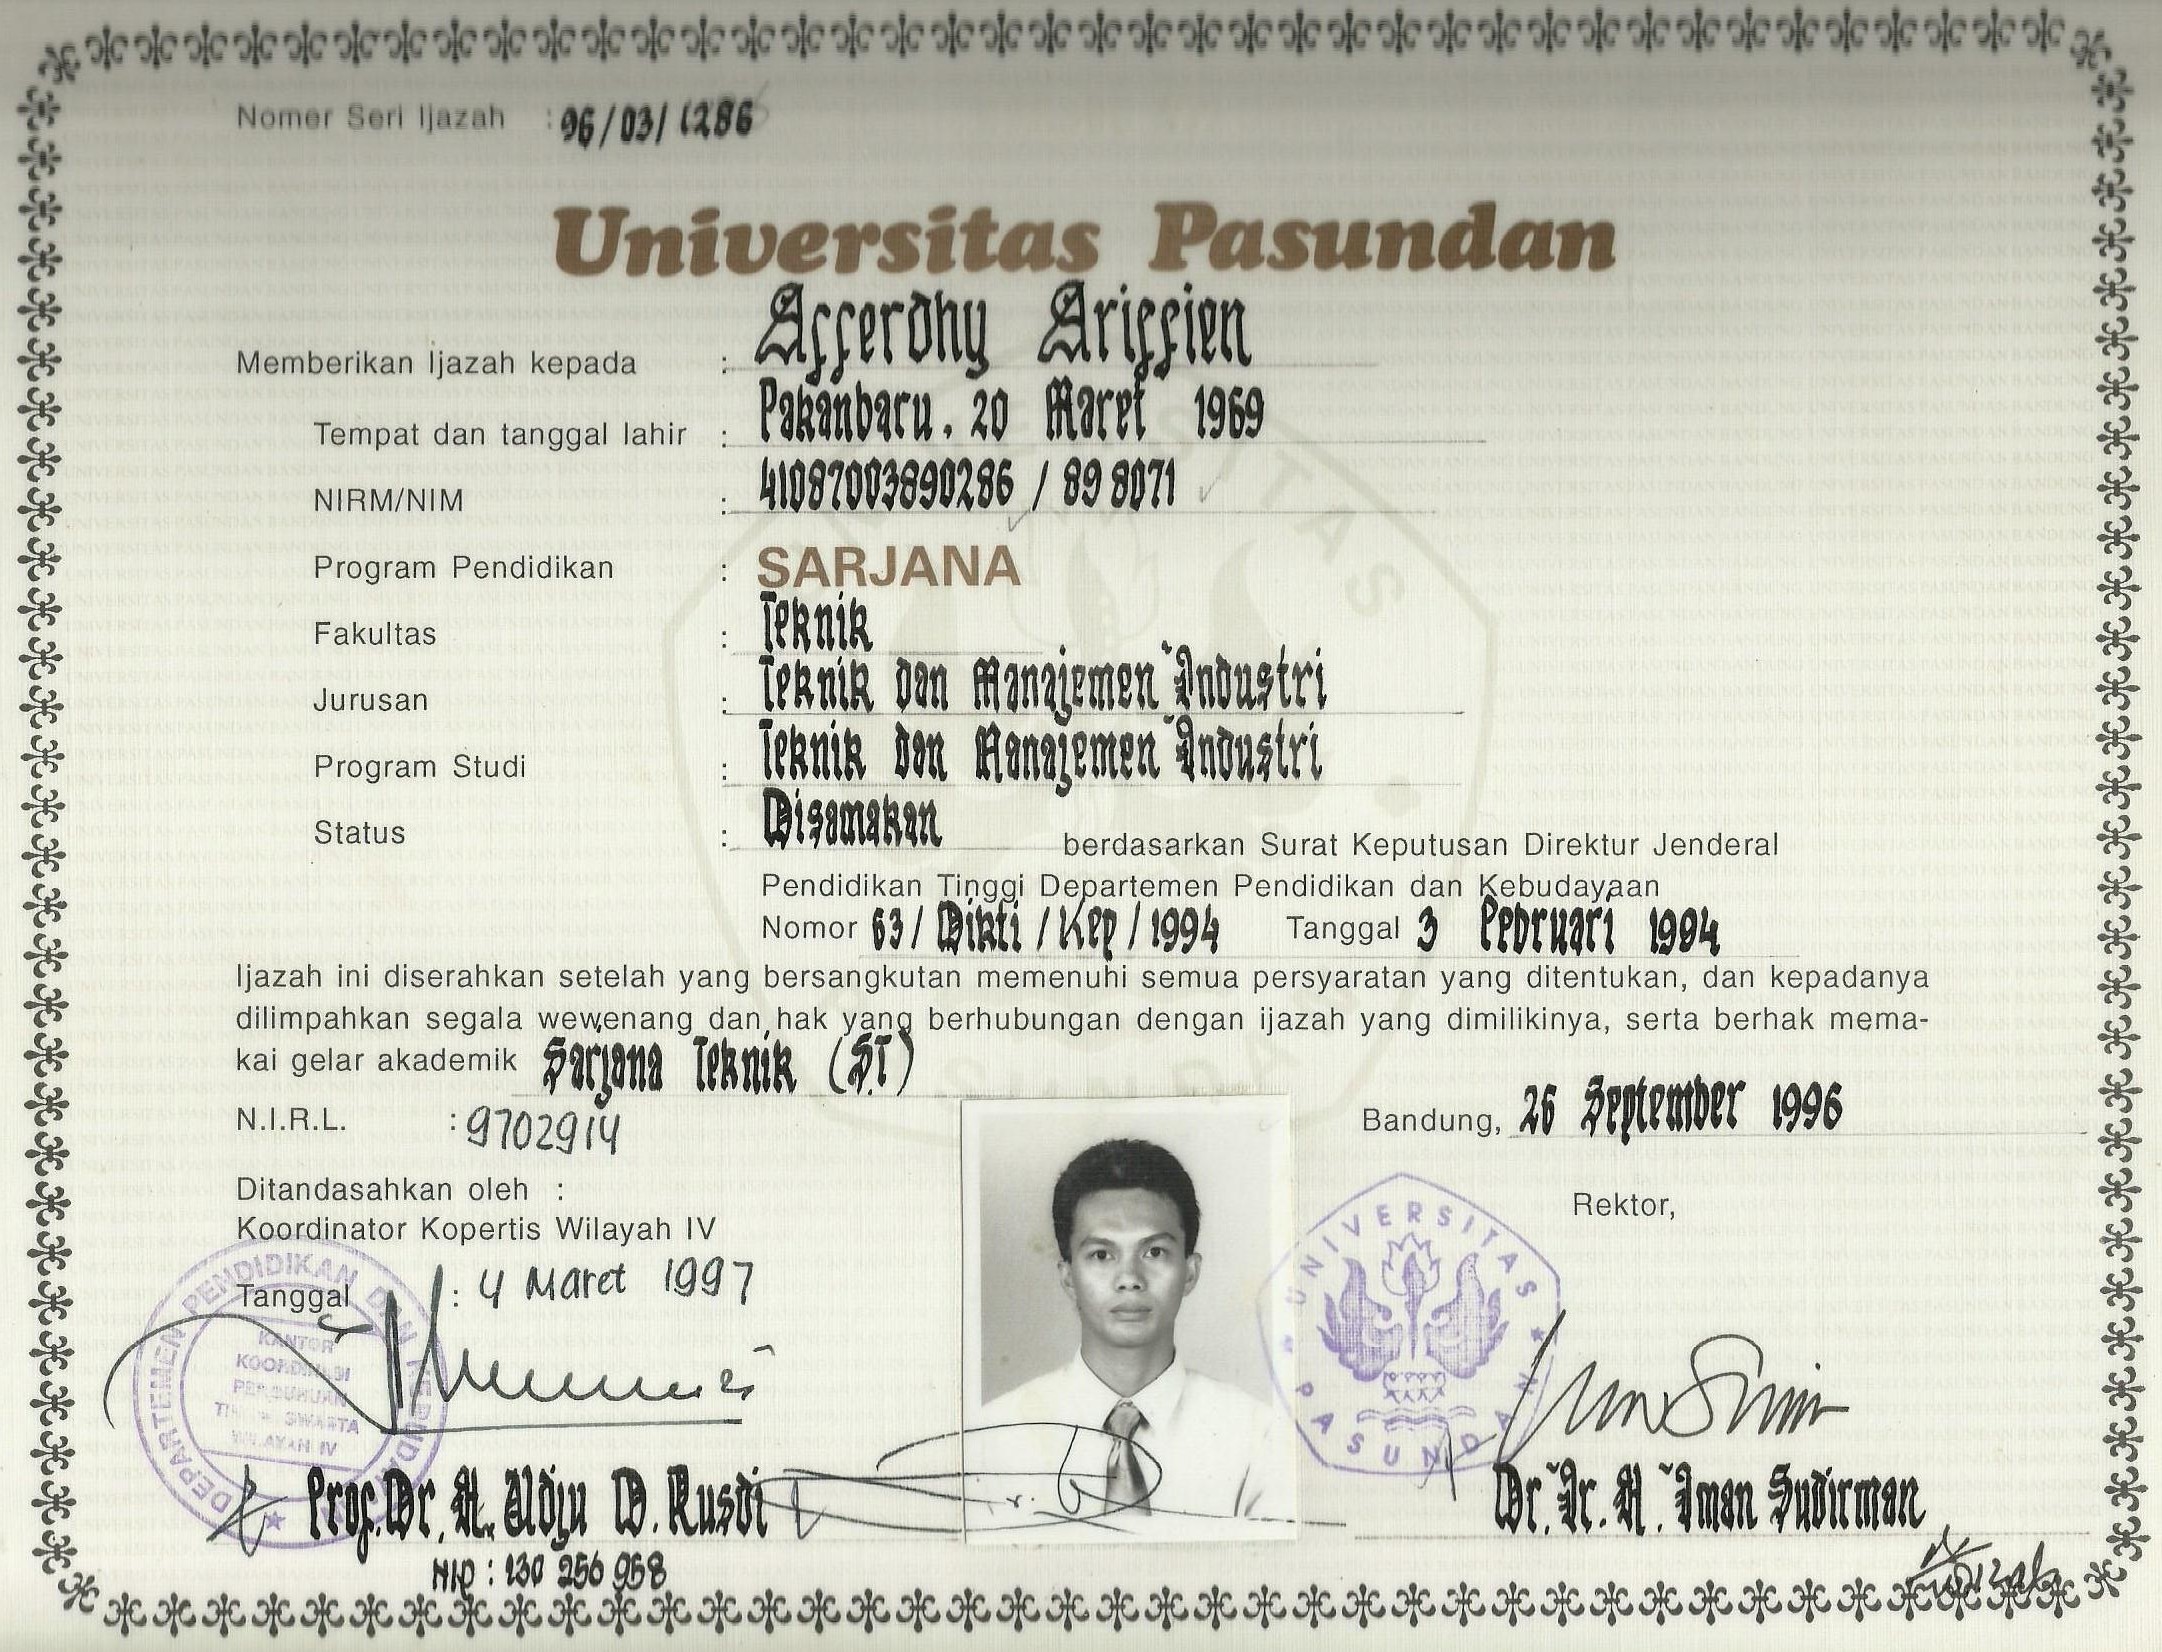 Nomer Seri Ijazah : 96/03/1286
Universitas Pasundan
Memberikan Ijazah kepada : Afferdhy Ariffien
Tempat dan tanggal lahir : Pakanbaru, 20 Maret 1969
NIRM/NIM : 41087003890286 / 89 8071
Program Pendidikan : SARJANA
Fakultas : Teknik
Jurusan : Teknik dan Manajemen Industri
Program Studi : Teknik dan Manajemen Industri
Status : Disamakan berdasarkan Surat Keputusan Direktur Jenderal
Pendidikan Tinggi Departemen Pendidikan dan Kebudayaan
Nomor 63/Dikti/Kep/1994 Tanggal 3 Februari 1994
Ijazah ini diserahkan setelah yang bersangkutan memenuhi semua persyaratan yang ditentukan, dan kepadanya
dilimpahkan segala wewenang dan hak yang berhubungan dengan ijazah yang dimilikinya, serta berhak mema-
kai gelar akademik Sarjana Teknik (ST)
N.I.R.L. : 9702914
Bandung, 26 September 1996
Ditandasahkan oleh :
Koordinator Kopertis Wilayah IV
Rektor,
Tanggal : 4 Maret 1997
DEPARTEMEN PENDIDIKAN DAN KEBUDAYAAN
KANTOR
KOORDINASI
PERGURUAN
TINGGI SWASTA
WILAYAH IV
UNIVERSITAS
PASUNDAN
Prof. Dr. H. Aldju D. Rusdi
Dr. Ir. H. Iman Sudirman
NIP : 130 256 958